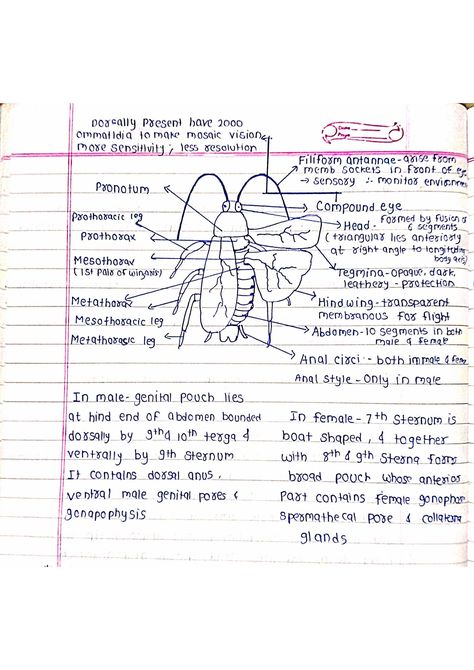 Dorsally Present have 2000
ommatidia to make mosaic vision
more sensitivity ; less resolution
Filiform antannae - arise from
memb sockets in front of eye
→ sensory ∴ monitor environmen
Pronotum
Compound eye
Prothoracic leg
Head - formed by fusion of
6 segments
(triangular lies anteriorly
at right angle to longitudinal
body axis)
Prothorax
Mesothorax
(1st Pair of wings)
Tegmina - opaque, dark,
leathery - protection
Metathorax
Hind wing - transparent
membranous for flight
Mesothoracic leg
Abdomen - 10 segments in both
male & female
Metathoracic leg
Anal circi - both in male & fem
Anal style - Only in male
In male - genital pouch lies
at hind end of abdomen bounded
dorsally by 9th & 10th terga &
ventrally by 9th sternum
It contains dorsal anus,
ventral male genital pores &
gonapophysis
In female - 7th Sternum is
boat shaped, & together
with 8th & 9th Sterna forms
broad pouch whose anterior
part contains female gonopore
spermathecal pore & collateral
glands